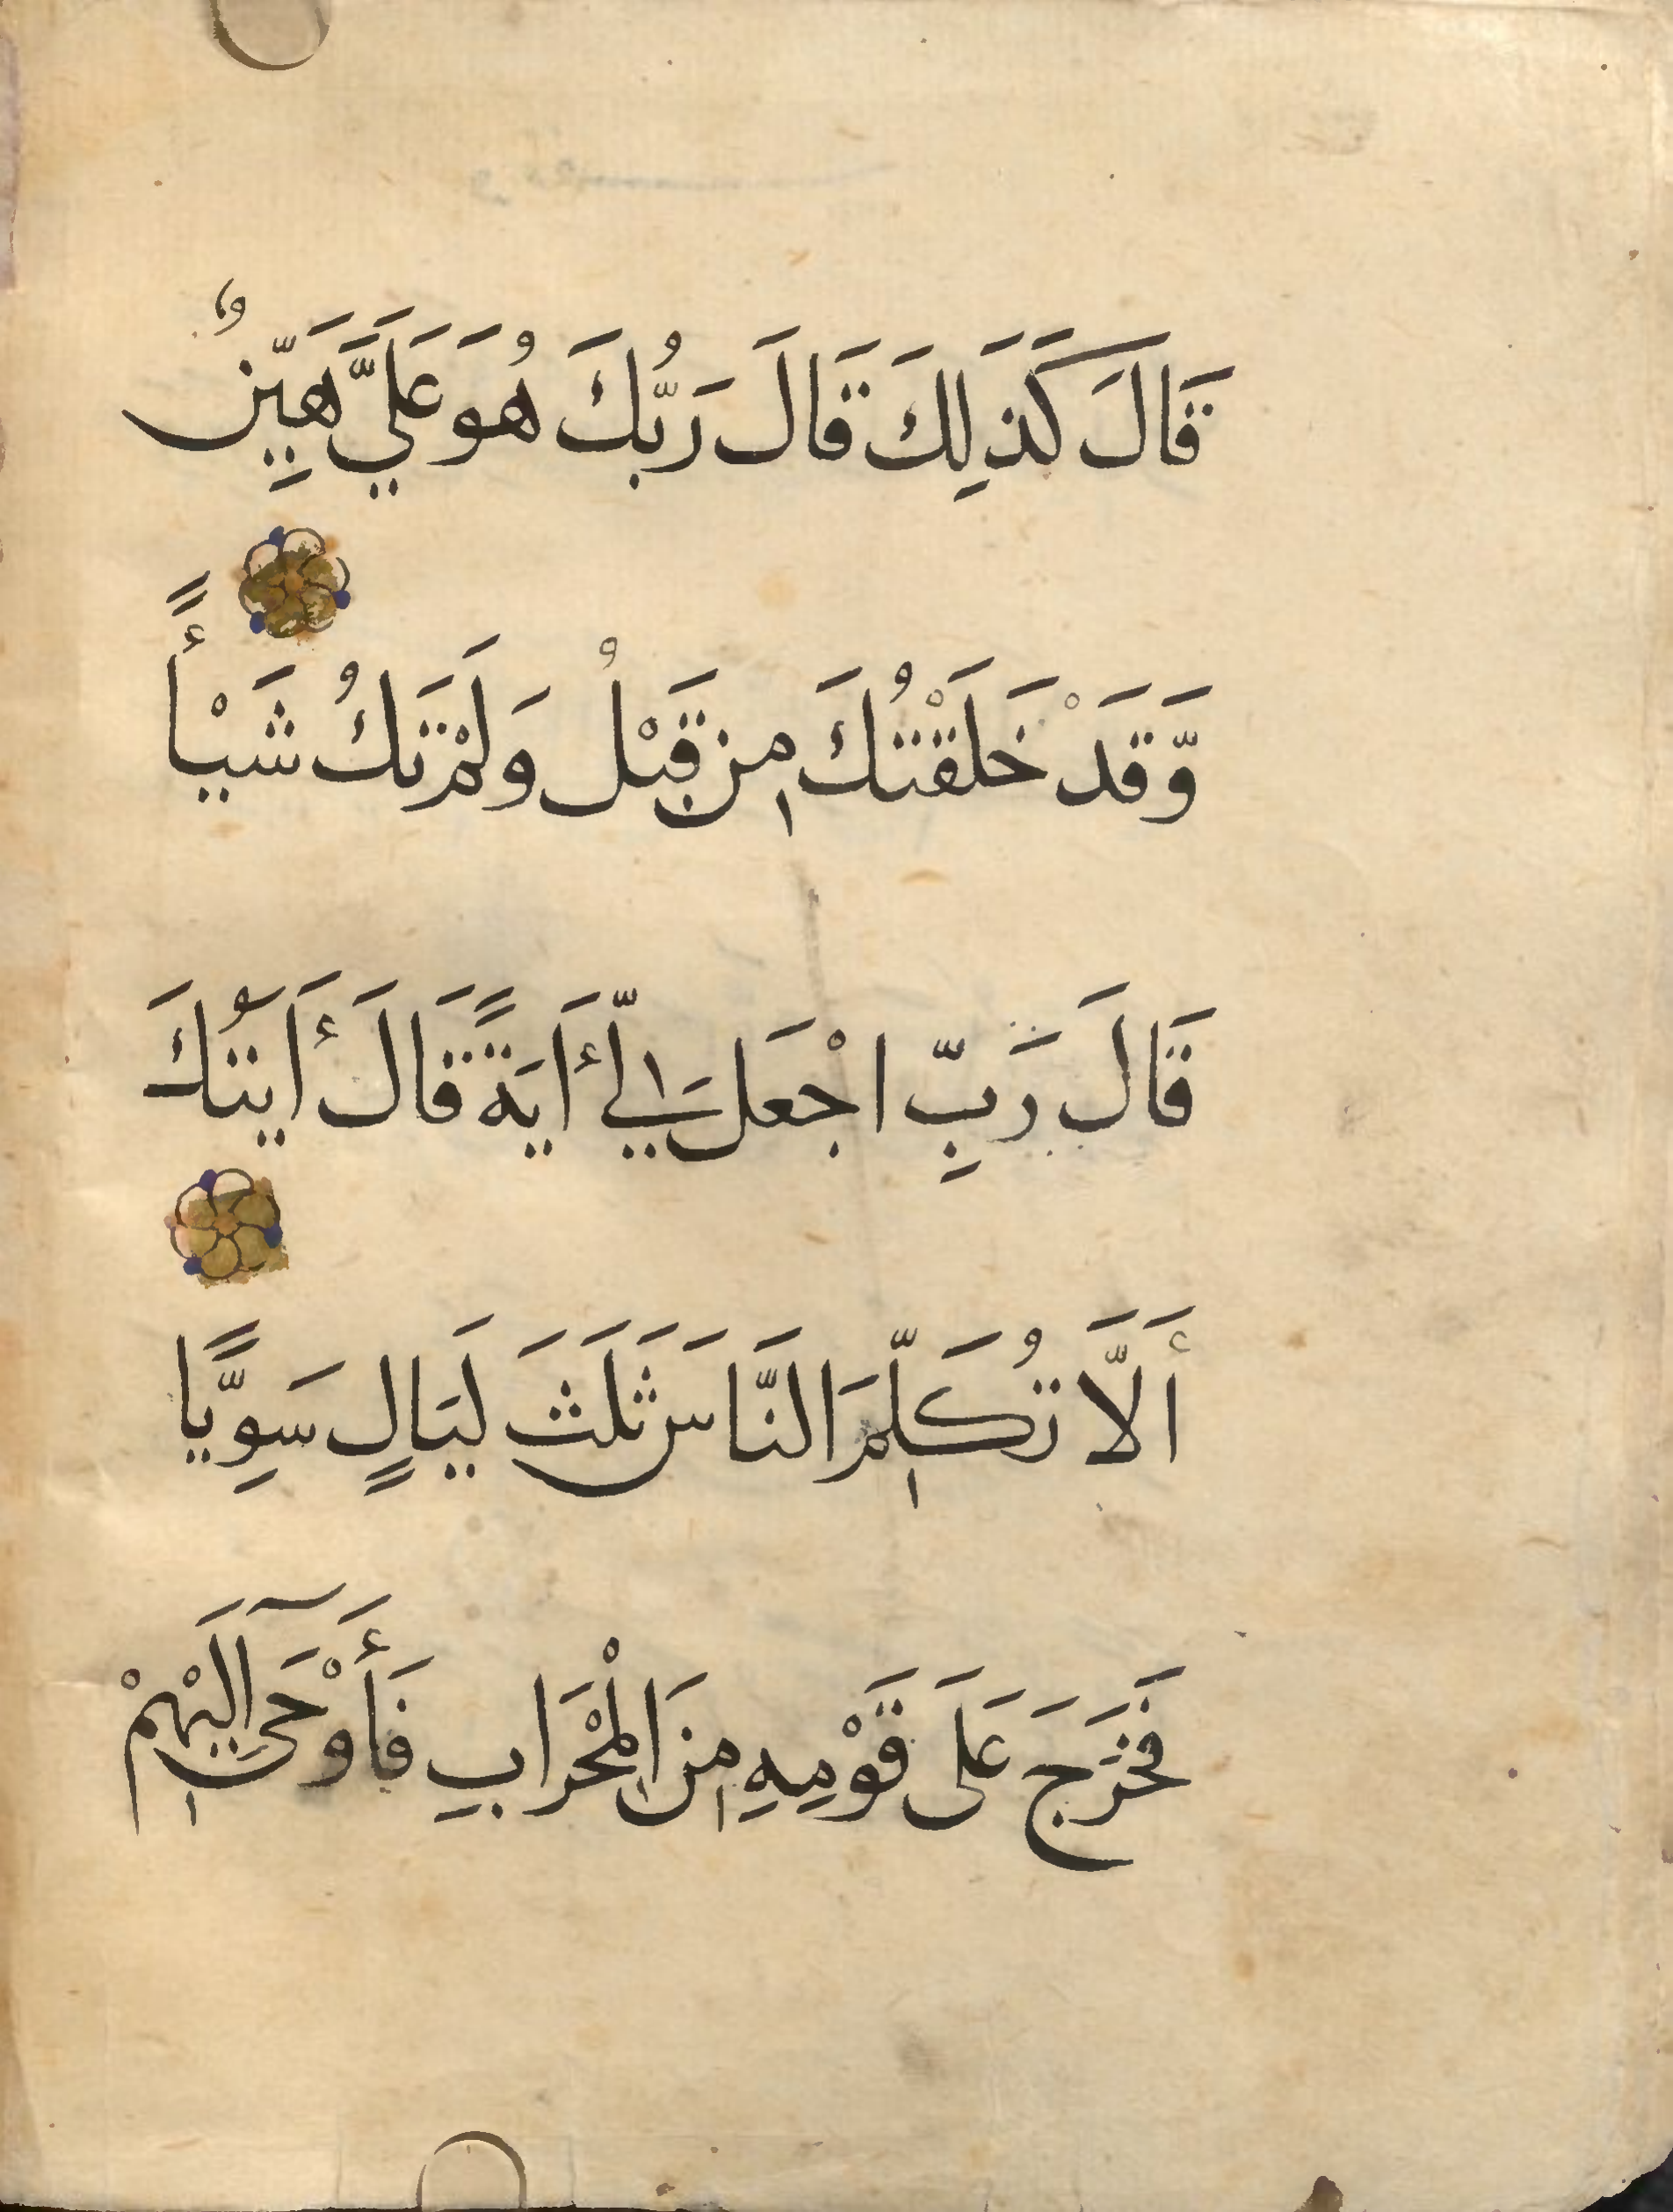 قَالَ كَذَلِكَ قَالَ رَبُّكَ هُوَ عَلَيَّ هَيِّنٌ
وَّقَدْ خَلَقْتُكَ مِن قَبْلُ وَلَمْ تَكُ شَيْأً
قَالَ رَبِّ اجْعَل لِّي أَايَةً قَالَ أَايَتُكَ
أَلَّا تُكَلِّمَ النَّاسَ ثَلَثَ لَيَالٍ سَوِيًّا
فَخَرَجَ عَلَى قَوْمِهِ مِنَ الْمِحْرَابِ فَأَوْحَىٓ إِلَيْهِمْ